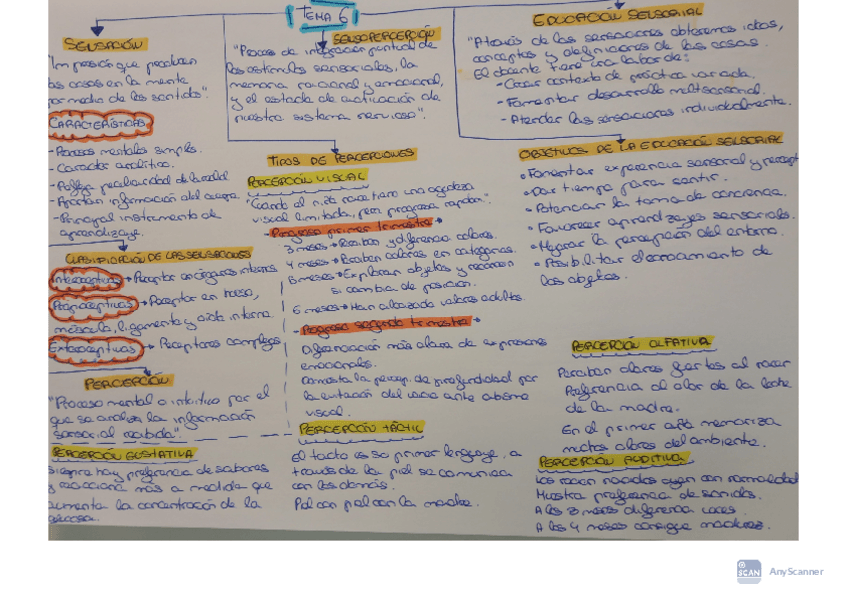 TEMA 6
SENSACIÓN
"Imposición que producen
las cosas en la mente
por medio de los sentidos".
CARACTERÍSTICAS
- Procesos mentales simples.
- Carácter analítico.
- Refleja peculiaridad de la realid
- Aportan información del cuerpo.
- Principal instrumento de
aprendizaje.
CLASIFICACIÓN DE LAS SENSACIONES
Interoceptivas → Receptor en órganos internos
Propioceptivas → Receptor en hueso,
músculo, ligamento y oído interno.
Exteroceptivas → Receptores complejos
PERCEPCIÓN
"Proceso mental o intuitivo por el
que se analiza la información
sensorial recibida".
PERCEPCIÓN GUSTATIVA
siempre hay preferencia de sabores
y reacciona más a medida que
aumenta la concentración de la
glucosa.
SENSOPERCEPCIÓN
"Proceso de integración puntual de
los estímulos sensoriales, la
memoria racional y emocional,
y el estado de activación de
nuestro sistema nervioso".
TIPOS DE PERCEPCIONES
PERCEPCIÓN VISUAL
"Cuando el niño nace tiene una agudeza
visual limitada, pero progresa rápido".
- Progreso primer trimestre →
3 meses → Perciben y diferencia colores.
4 meses → Perciben colores en categorías.
5 meses → Exploran objetos y reconocen
si cambia de posición.
6 meses → Han alcanzado valores adultos.
- Progreso segundo trimestre →
Diferenciación más clara de expresiones
emocionales.
la percep. de profundidad por
la evitación del vacío ante abismo
visual.
PERCEPCIÓN TÁCTIL
El tacto es su primer lenguaje, a
través de la piel se comunica
con los demás.
Piel con piel con la madre.
EDUCACIÓN SENSORIAL
"A través de las sensaciones obtenemos ideas,
conceptos y definiciones de las cosas.
El docente tiene una labor de:
- Crear contexto de práctica variada.
- Fomentar desarrollo multisensorial.
- Atender las sensaciones individualmente.
OBJETIVOS DE LA EDUCACIÓN SENSORIAL
• Fomentar experiencia sensorial y recept
• Dar tiempo para sentir.
• Potenciar la toma de conciencia.
• Favorecer aprendizajes sensoriales.
• Mejorar la percepción del entorno.
• Posibilitar el conocimiento de
los objetos.
PERCEPCIÓN OLFATIVA
Perciben olores fuertes al nacer
Preferencia al olor de la leche
de la madre.
En el primer año memoriza
muchos olores del ambiente.
PERCEPCIÓN AUDITIVA
Los recién nacidos oyen con normalidad
Muestra preferencia de sonidos.
A los 3 meses diferencia voces.
A los 4 meses consigue madurez.
SCAN
AnyScanner